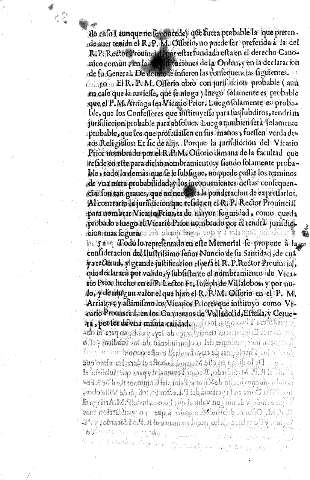 do caso (aunque no se concede) que fuera probable la que preten-
de auer tenido el R. P. M. Ossorio, no puede ser preferida à la del
R. P. Rector Prouincial, por estar fundada esta en el derecho Cano-
nico comun, y en las        ciones de la Orden, y en la declaracion
de su General. De donde se infieren las consequencias siguientes.
El R. P. M. Ossorio obrò con jurisdicion probable (aun
en caso que la tuuiesse, que se alega) luego solamente es probable
que el P. M. Arriaga sea Vicario Prior. Luego solamente es proba-
ble, que los Confessores que instituyesse para sus subditos, tendràn
jurisdicion probable para absoluer. Luego tambien serà solamente
probable, que los que professassen en sus manos, fuessen verda de-
ros Religiosos: Et sic de alijs. Porque la jurisdicion del Vicario
Prior nombrado por el R. P. M. Ossorio dimana de la facultad que
reside en este para dicho nombramiento, y siendo solamente proba-
ble, todo lo demàs que se le subsigue, no puede passar los terminos
de vna mera probabilidad, y los inconuenientes destas consequen-
cias son tan graues, que no necessitan de la ponderacion de expressarlos.
Al contrario la jurisdicion que reside en el R. P. Rector Prouincial
para nombrar Vicario Prior, es de mayor seguridad, como queda
probado: luego el Vicario Prior nombrado por èl tendrà jurisdi-
cion mas segura.
Todo lo representado en este Memorial se propone à la
consideracion del Illustrissimo señor Nuncio de su Santidad, de cu-
ya rectitud, y grande justificacion espera el R. P. Rector Prouincial,
que declararà por valido, y subsistente el nombramiento de Vica-
rio Prior hecho en el P. Lector Fr. Joseph de Villalobos, y por nu-
lo, y de ningun valor el que hizo el R. P. M. Ossorio en el P. M.
Arriaga, y assimismo los Vicarios Priores que instituyò como Vi-
cario Prouincial, en los Conuentos de Valladolid, Estella, y Cerue-
ra, por ser de vna misma calidad.